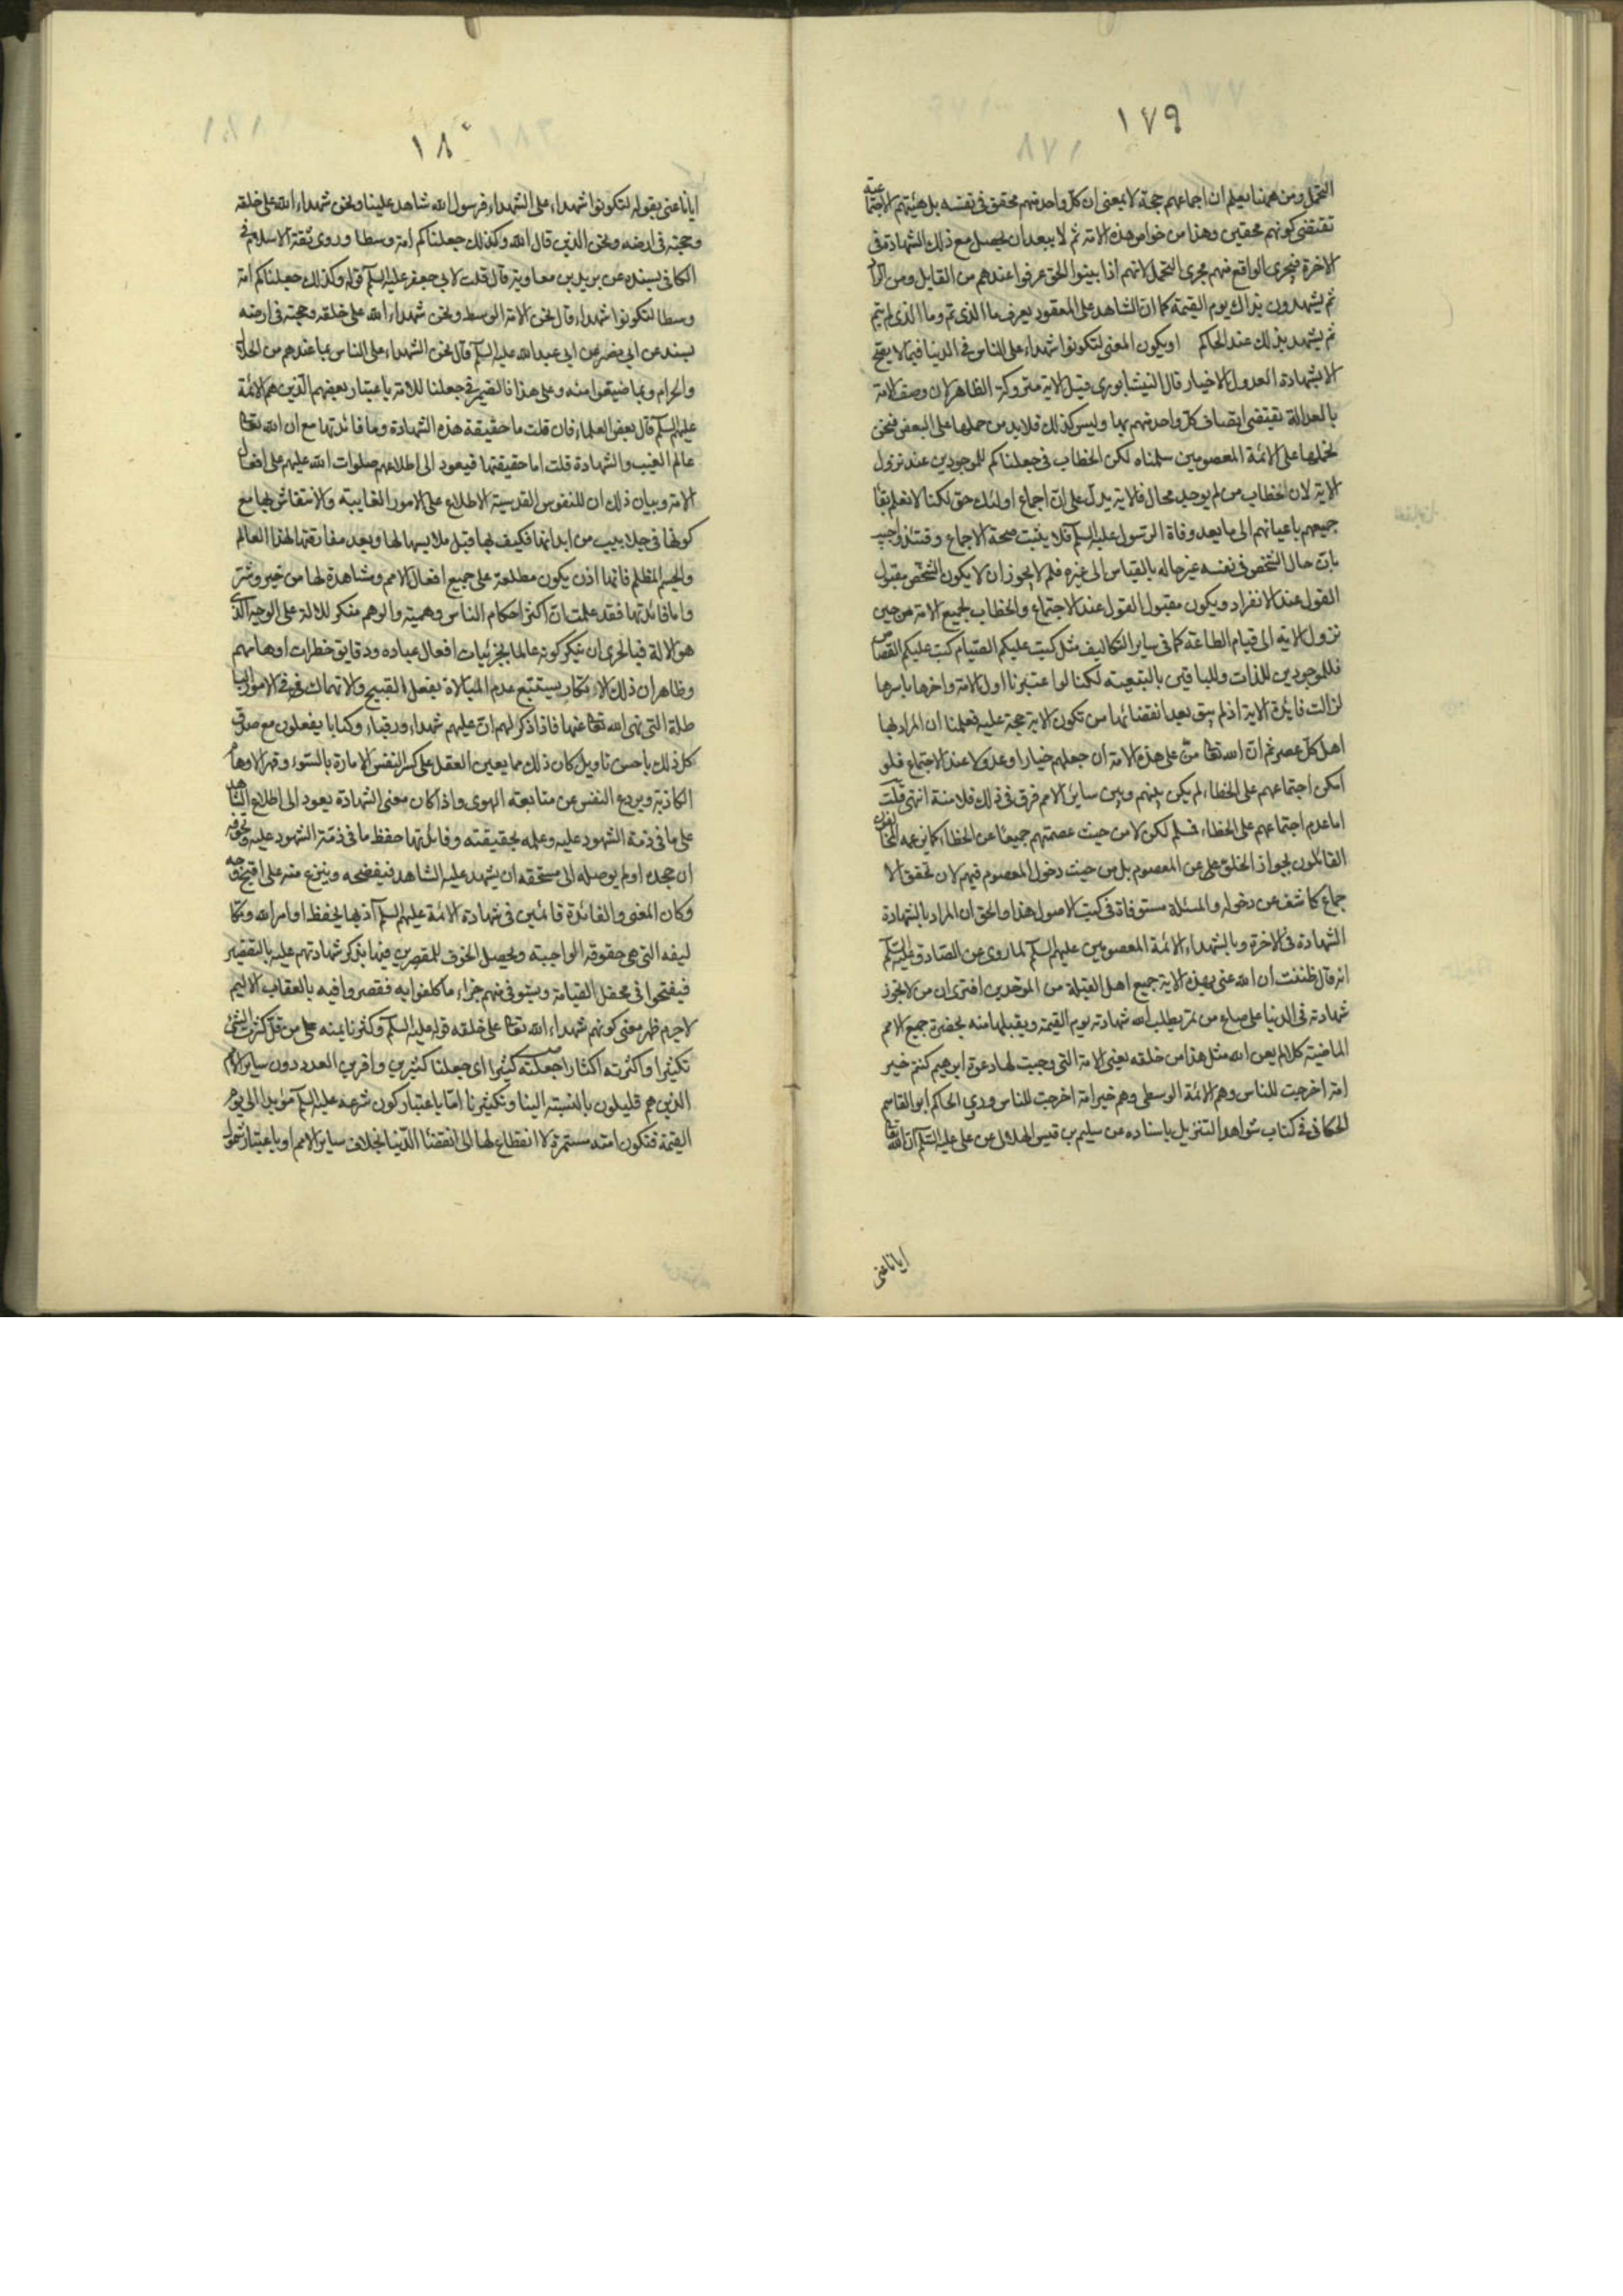 ١٧٩
التحمل ومن ههنا يعلم ان اجماعهم حجة لا بمعنى ان كل واحد منهم محق فى نفسه بل هيئتهم الاجتماعية
تقتضى كونهم محقين وهذا من خواص هذه الامة ثم لا يبعد ان يحصل مع ذلك الشهادة فى
الاخرة فيجرى الواقع منهم مجرى التحمل لانهم اذا بينوا الحق عرفوا عندهم من القابل ومن الراد
ثم يشهدون بذلك يوم القيمة كما ان الشاهد على العقود يعرف ما الذى تم وما الذى لم يتم
ثم يشهد بذلك عند الحاكم او يكون المعنى لتكونوا شهداء على الناس فى الدنيا فيما لا يصح
الا بشهادة العدول الاخيار قال النيشابورى قيل الاية متروكة الظاهر لان وصف الامة
بالعدالة يقتضى اتصاف كل واحد منهم بها وليس كذلك فلابد من حملها على البعض فنحن
نحملها على الائمة المعصومين سلمناه لكن الخطاب فى جعلناكم للموجودين عند نزول
الاية لان خطاب من لم يوجد محال فالاية يدل على ان اجماع اولئك حق لكنا لا نعلم بقاء
جميعهم باعيانهم الى ما بعد وفاة الرسول عليه السلم فلا يثبت صحة الاجماع وقتئذ واجيب
بان حال الشخص فى نفسه غير حاله بالقياس الى غيره فلم لا يجوز ان لا يكون الشخص مقبول
القول عند الانفراد ويكون مقبول القول عند الاجتماع والخطاب لجميع الامة من حين
نزول الاية الى قيام الطاعة كما فى ساير التكاليف مثل كتب عليكم الصيام كتب عليكم القصاص
فللموجودين للذات وللباقين بالتبعية لكنا لو اعتبرنا اول الامة واخرها باسرها
لزالت فايدة الاية اذ لم يبق بعد انقضائها من تكون الاية حجة عليه فعلمنا ان المراد بها
اهل كل عصر ثم ان الله تعا من على هذه الامة ان جعلهم خيارا وعدولا عند الاجتماع فلو
امكن اجتماعهم على الخطاء لم يكن بينهم وبين ساير الامم فرق فى ذلك فلا منة انتهى قلت
اما عدم اجتماعهم على الخطاء فسلم لكن لا من حيث عصمتهم جميعا عن الخطاء كما يزعمه المخالفون
القائلون بجواز الخلو عن المعصوم بل من حيث دخول المعصوم فيهم لان تحقق الا
جماع كاشف عن دخوله والمسئلة مستوفاة فى كتب الاصول هذا والحق ان المراد بالشهادة
الشهادة فى الاخرة وبالشهداء الائمة المعصومين عليهم السلم لما روى عن الصادق عليه السلم
انه قال ظننت ان الله عنى بهذه الاية جميع اهل القبلة من الموحدين افترى ان من لا يجوز
شهادته فى الدنيا على صاع من تمر يطلب الله شهادته يوم القيمة ويقبلها منه بحضرة جميع الامم
الماضية كلا لم يعن الله مثل هذا من خلقه يعنى الامة التى وجبت لها دعوة ابرهيم كنتم خير
امة اخرجت للناس وهم الائمة الوسطى وهم خير امة اخرجت للناس وروى الحاكم ابو القاسم
الحسكانى فى كتاب شواهد التنزيل باسناده عن سليم بن قيس الهلالى عن على عليه السلم ان الله تعا
ايانا عنى
١٨٠
ايانا عنى بقوله لتكونوا شهداء على الشهداء فرسول الله شاهد علينا ونحن شهداء الله على خلقه
وحجته فى ارضه ونحن الذين قال الله وكذلك جعلناكم امة وسطا وروى ثقة الاسلام فى
الكافى بسنده عن بريد بن معاوية قال قلت لابي جعفر عليه السلم قوله وكذلك جعلناكم امة
وسطا لتكونوا شهداء قال نحن الامة الوسط ونحن شهداء الله على خلقه وحجته فى ارضه
بسنده عن ابي بصير عن ابي عبد الله عليه السلم قال نحن الشهداء على الناس بما عندهم من الحلال
والحرام وبما ضيعوا منه وعلى هذا فالضمير فى جعلنا للامة باعتبار بعضهم الذين هم الائمة
عليهم السلم قال بعض العلماء فان قلت ما حقيقة هذه الشهادة وما فائدتها مع ان الله تعا
عالم الغيب والشهادة قلت اما حقيقتها فيعود الى اطلاعهم صلوات الله عليهم على افعال
الامة وبيان ذلك ان للنفوس القدسية الاطلاع على الامور الغايبة والانتقاش بها مع
كونها فى جلابيب من ابدانها فكيف بها قبل ملابسها لها وبعد مفارقتها لهذا العالم
والجسم المظلم فانها اذن يكون مطلعة على جميع افعال الامم ومشاهدة لها من خير وشر
واما فائدتها فقد علمت ان اكثر احكام الناس وهمية والوهم منكر للاله على الوجه الذى
هو الاله فبالحرى ان ينكر كونه عالما بجزئيات افعال عباده ودقايق خطرات اوهامهم
وظاهر ان ذلك الانكار يستتبع عدم المبالاة بفعل القبيح والانهماك فى الامور الباطلة
طلة التى نهى الله تعا عنها فاذا ذكر لهم ان عليهم شهداء ورقباء وكتابا يفعلون مع صدق
كل ذلك باحسن تاويل كان ذلك مما يعين العقل على كسر النفس الامارة بالسوء وقهر الاوهام
الكاذبة ويردع النفس عن متابعة الهوى واذا كان معنى الشهادة يعود الى اطلاع الشاهد
على ما فى ذمة المشهود عليه وعلمه بحقيقته وفائدتها حفظ ما فى ذمة المشهود عليه
ان جحده او لم يوصله الى مستحقه ان يشهد عليه الشاهد فيفضحه وينزع منه على اقبح وجه
وكان المعنى والفائدة قائمين فى شهادة الائمة عليهم السلم اذ بها يحفظ اوامر الله وتكا
ليفه التى هى حقوقه الواجبة ويحصل الخوف للمقصرين فيها بذكر شهادتهم عليه بالتقصير
فيفتضحوا فى محفل القيامة ويستوفى منهم جزاء ما كلفوا به فقصروا فيه بالعقاب الاليم
لا جرم ظهر معنى كونهم شهداء الله تعا على خلقه قوله عليه السلم وكثرنا بمنه على من قل كثرت الشئ
تكثيرا واكثرته اكثارا جعلته كثيرا اى جعلنا كثيرين وافرين العدد دون ساير الامم
الذين هم قليلون بالنسبة الينا وتكثيرنا اما باعتبار كون شرعه عليه السلم مؤبدا الى يوم
القيمة فتكون امته مستمرة لا انقطاع لها الى انقضاء الدنيا بخلاف ساير الامم او باعتبار شمول